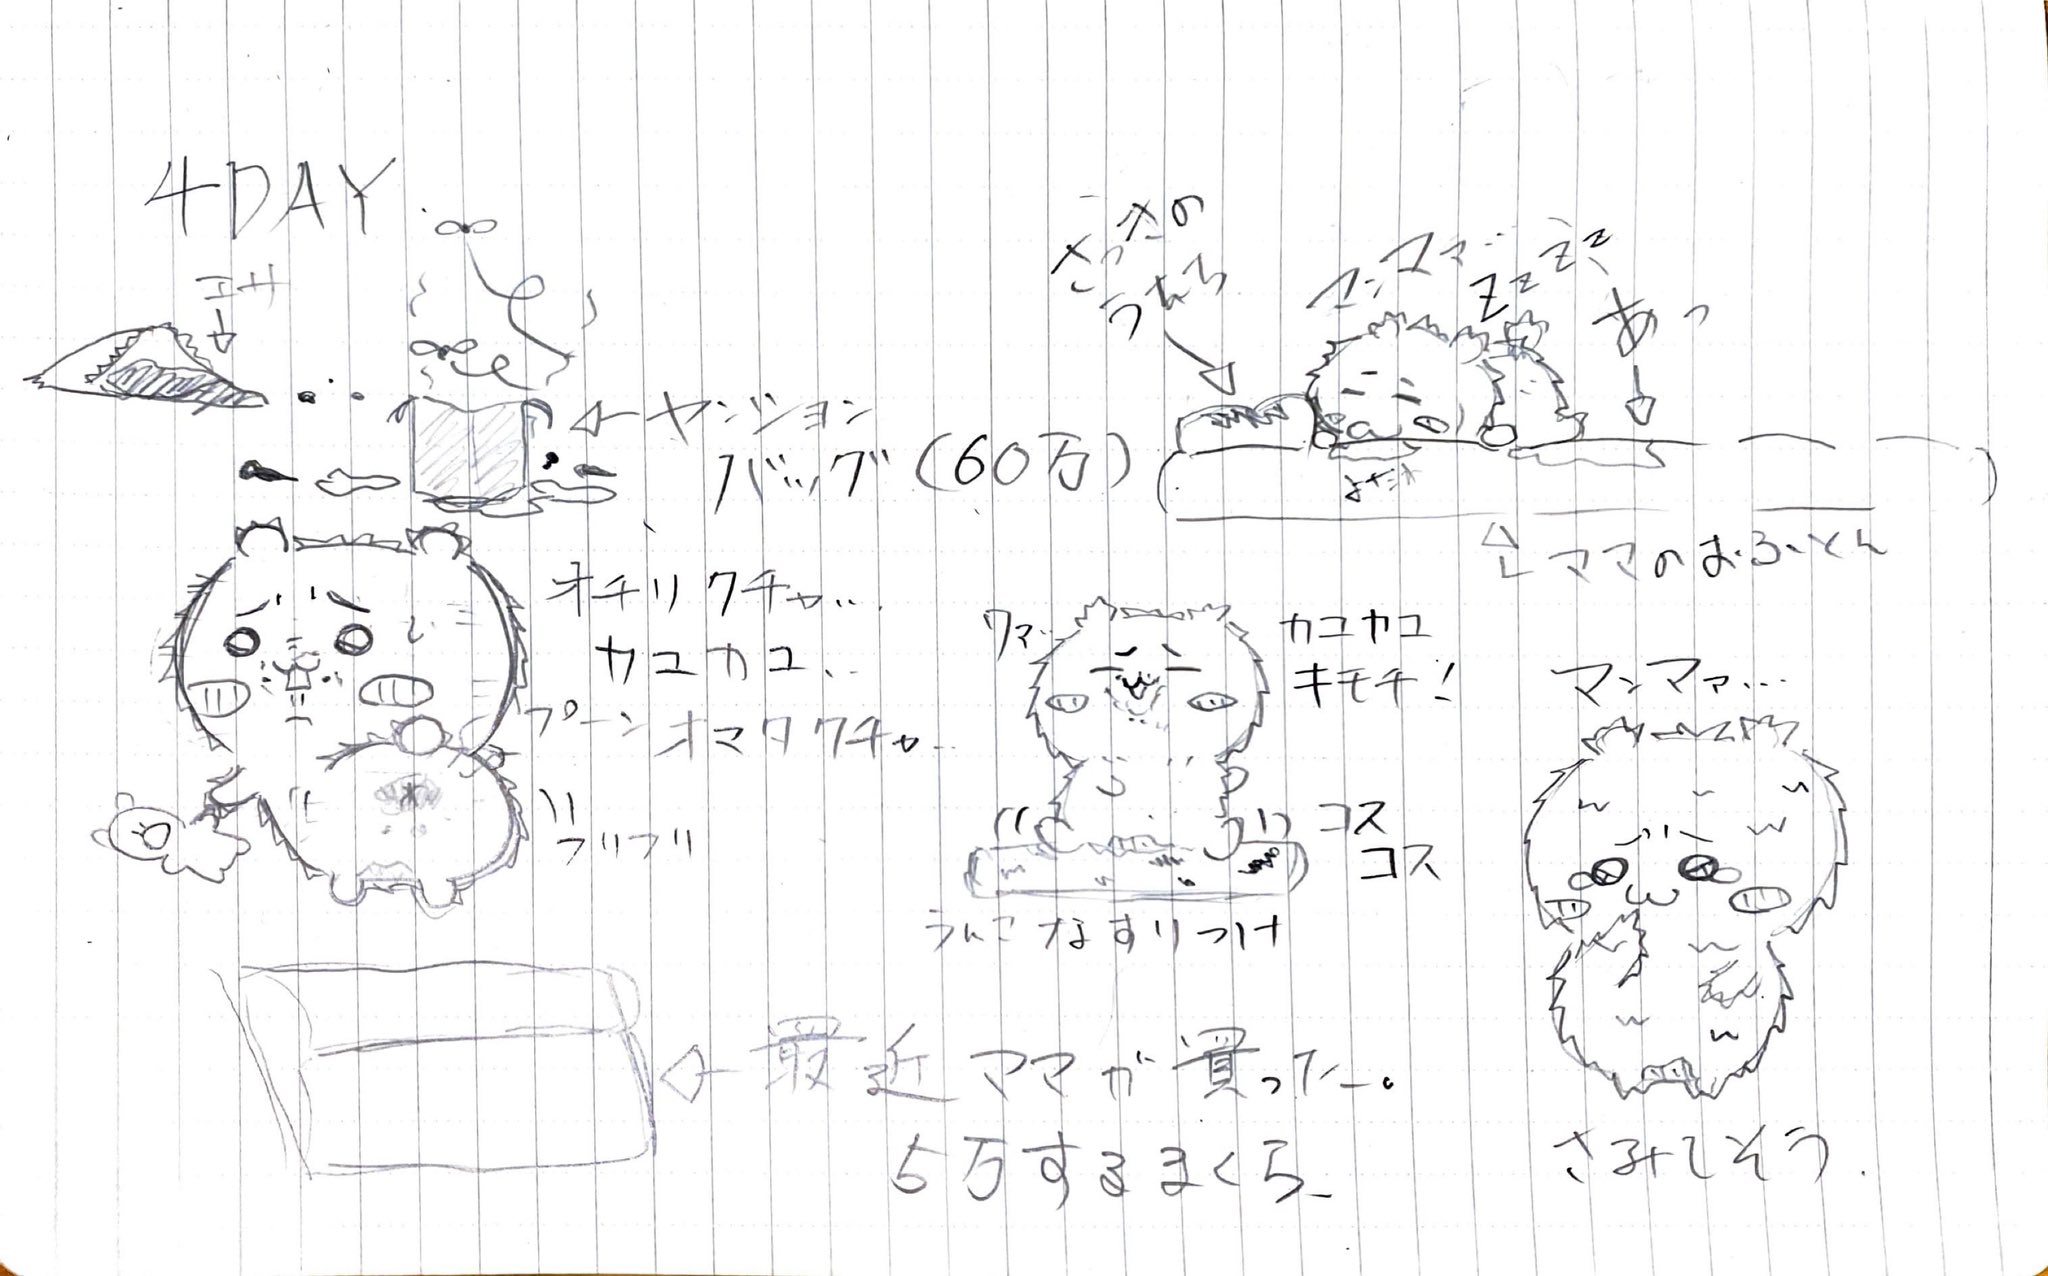 4DAY
エサ
ヤンション
バッグ(60万)
オチリクチャ…
カユカユ…
プーン オマタクチャ…
フリフリ
さっきの
うんち
マンママ…
ZzzZzz
あっ
ママのおふとん
ワァ…
カユカユ
キモチ!
コス
コス
うんこなすりつけ
マンマァ…
さみしそう.
最近ママが買った。
5万するまくら